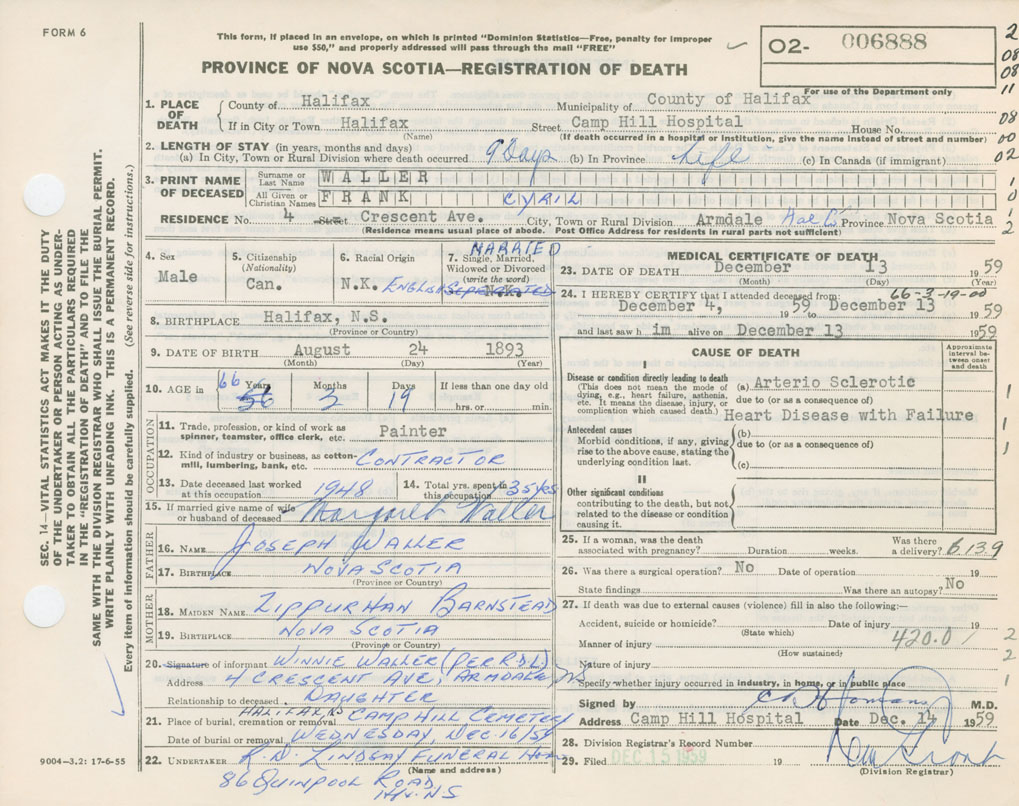 FORM 6
This form, if placed in an envelope, on which is printed "Dominion Statistics—Free, penalty for improper
use $50," and properly addressed will pass through the mail "FREE"
PROVINCE OF NOVA SCOTIA—REGISTRATION OF DEATH
O2- 006888
For use of the Department only
2
08
08
11
08
00
02
1
0
1
2
1
1
1
2
2
1
SEC. 14—VITAL STATISTICS ACT MAKES IT THE DUTY
OF THE UNDERTAKER OR PERSON ACTING AS UNDER-
TAKER TO OBTAIN ALL THE PARTICULARS REQUIRED
IN THE "REGISTRATION OF DEATH" AND TO FILE THE
SAME WITH THE DIVISION REGISTRAR WHO SHALL ISSUE THE BURIAL PERMIT.
WRITE PLAINLY WITH UNFADING INK. THIS IS A PERMANENT RECORD.
Every item of information should be carefully supplied. (See reverse side for instructions.)
1. PLACE OF DEATH
County of Halifax Municipality of County of Halifax
If in City or Town Halifax Street Camp Hill Hospital House No.
(Name) (If death occurred in a hospital or institution, give the name instead of street and number)
2. LENGTH OF STAY (in years, months and days)
(a) In City, Town or Rural Division where death occurred 9 Days (b) In Province Life (c) In Canada (if immigrant)
3. PRINT NAME OF DECEASED
Surname or Last Name WALLER
All Given or Christian Names FRANK CYRIL
RESIDENCE No. 4 Street Crescent Ave. City, Town or Rural Division Armdale Hal Co Province Nova Scotia
(Residence means usual place of abode. Post Office Address for residents in rural parts not sufficient)
4. Sex
Male
5. Citizenship
(Nationality)
Can.
6. Racial Origin
N.K. ENGLISH
7. Single, Married, Widowed or Divorced
(write the word)
MARRIED
SEPERATED
N.K.
8. BIRTHPLACE Halifax, N.S.
(Province or Country)
9. DATE OF BIRTH August 24 1893
(Month) (Day) (Year)
10. AGE in Years Months Days If less than one day old
66 56 3 19 hrs. or min.
OCCUPATION
11. Trade, profession, or kind of work as
spinner, teamster, office clerk, etc. Painter
12. Kind of industry or business, as cotton-
mill, lumbering, bank, etc. CONTRACTOR
13. Date deceased last worked
at this occupation 1948
14. Total yrs. spent in
this occupation 35 yrs
15. If married give name of wife
or husband of deceased Margaret Waller
FATHER
16. NAME JOSEPH WALLER
17. BIRTHPLACE NOVA SCOTIA
(Province or Country)
MOTHER
18. MAIDEN NAME ZIPPURHAN BARNSTEAD
19. BIRTHPLACE NOVA SCOTIA
(Province or Country)
20. Signature of informant WINNIE WALLER (PER R.D.L.)
Address 4 CRESCENT AVE, ARMDALE NS
Relationship to deceased DAUGHTER
21. Place of burial, cremation or removal HALIFAX, NS CAMP HILL CEMETERY
Date of burial or removal WEDNESDAY, DEC 16/59
22. UNDERTAKER R.D. LINDSAY FUNERAL HOME
(Name and address)
86 QUINPOOL ROAD
9004-3.2: 17-6-55
MEDICAL CERTIFICATE OF DEATH
23. DATE OF DEATH December 13 1959
(Month) (Day) (Year)
24. I HEREBY CERTIFY that I attended deceased from: 66-3-19-00
December 4, 1959 to December 13 1959
and last saw him alive on December 13 1959
CAUSE OF DEATH
Approximate interval between onset and death
I
Disease or condition directly leading to death
(This does not mean the mode of
dying, e.g., heart failure, asthenia,
etc. It means the disease, injury, or
complication which caused death.)
(a) Arterio Sclerotic
due to (or as a consequence of)
Heart Disease with Failure
Antecedent causes
Morbid conditions, if any, giving
rise to the above cause, stating the
underlying condition last.
(b)
due to (or as a consequence of)
(c)
II
Other significant conditions
contributing to the death, but not
related to the disease or condition
causing it.
25. If a woman, was the death
associated with pregnancy? Duration weeks. Was there
a delivery? 6139
26. Was there a surgical operation? No Date of operation 19
State findings Was there an autopsy? No
27. If death was due to external causes (violence) fill in also the following:—
Accident, suicide or homicide? Date of injury 19
(State which)
Manner of injury 420.0
(How sustained)
Nature of injury
Specify whether injury occurred in industry, in home, or in public place
Signed by M.D.
Address Camp Hill Hospital Date Dec. 14 1959
28. Division Registrar's Record Number
29. Filed DEC 15 1959 19
(Division Registrar)